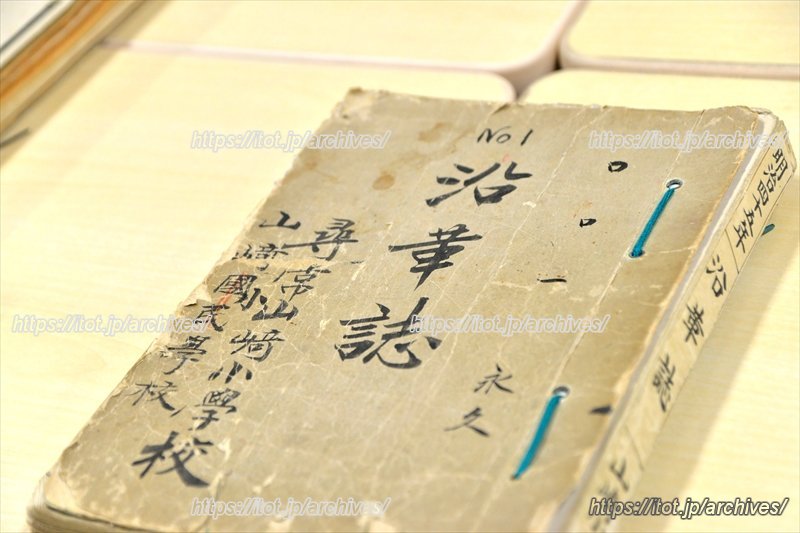 No 1
沿革誌
永久
尋常山﨑小學校
山﨑國民學校
明治四十五年 沿革誌
https://itot.jp/archives/
https://itot.jp/archives/
https://itot.jp/archives/
https://itot.jp/archives/
https://itot.jp/archives/
https://itot.jp/archives/